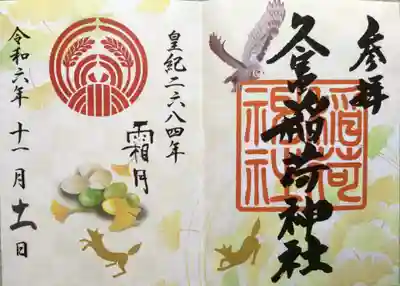 参拝
久富稲荷神社
稲荷
神社
皇紀二六八四年
霜月
令和六年 十一月 十一日